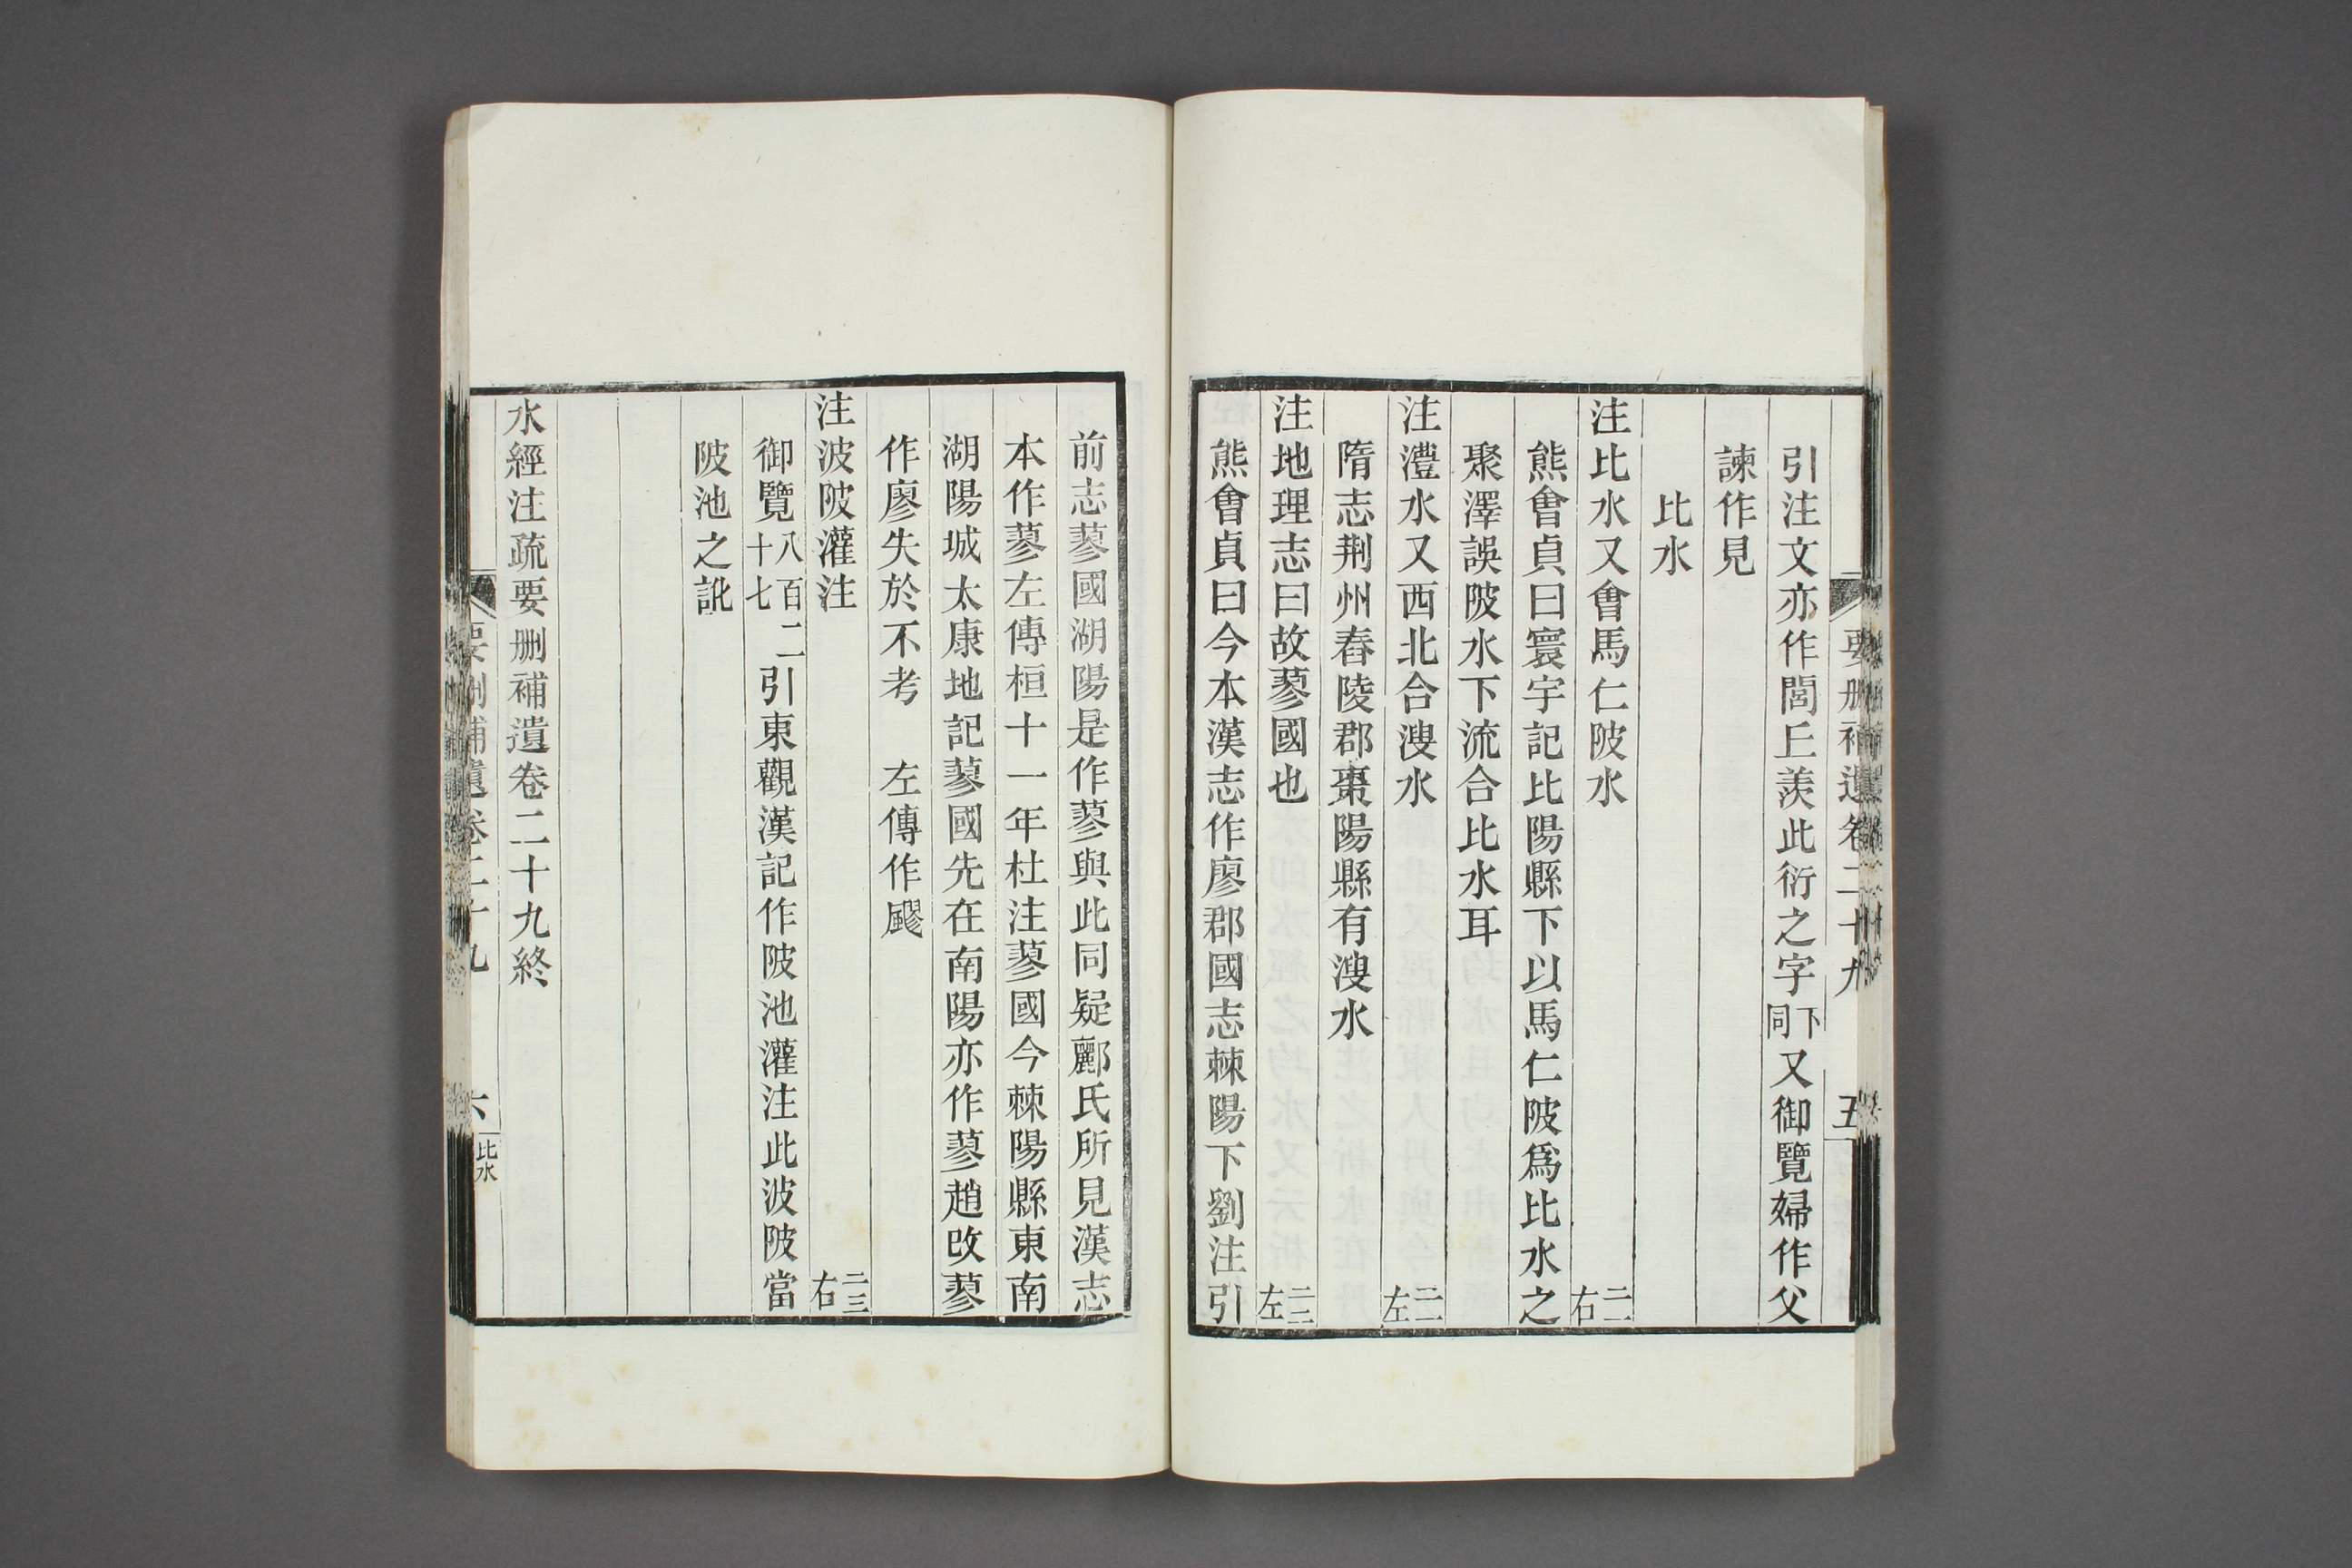 要刪補遺卷二十九 五
引注文亦作閭丘羨此衍之字下同又御覽婦作父
諫作見
比水
注比水又會馬仁陂水 二一右
熊會貞曰寰宇記比陽縣下以馬仁陂為比水之
聚澤誤陂水下流合比水耳
注澧水又西北合溲水 二一左
隋志荆州舂陵郡棗陽縣有溲水
注地理志曰故蓼國也 二二左
熊會貞曰今本漢志作廖郡國志棘陽下劉注引
前志蓼國湖陽是作蓼與此同疑酈氏所見漢志
本作蓼左傳桓十一年杜注蓼國今棘陽縣東南
湖陽城太康地記蓼國先在南陽亦作蓼趙改蓼
作廖失於不考 左傳作飂
注波陂灌注 二三右
御覽八百二十七引東觀漢記作陂池灌注此波陂當
陂池之訛
水經注疏要刪補遺卷二十九終
要刪補遺卷二十九 六 比水